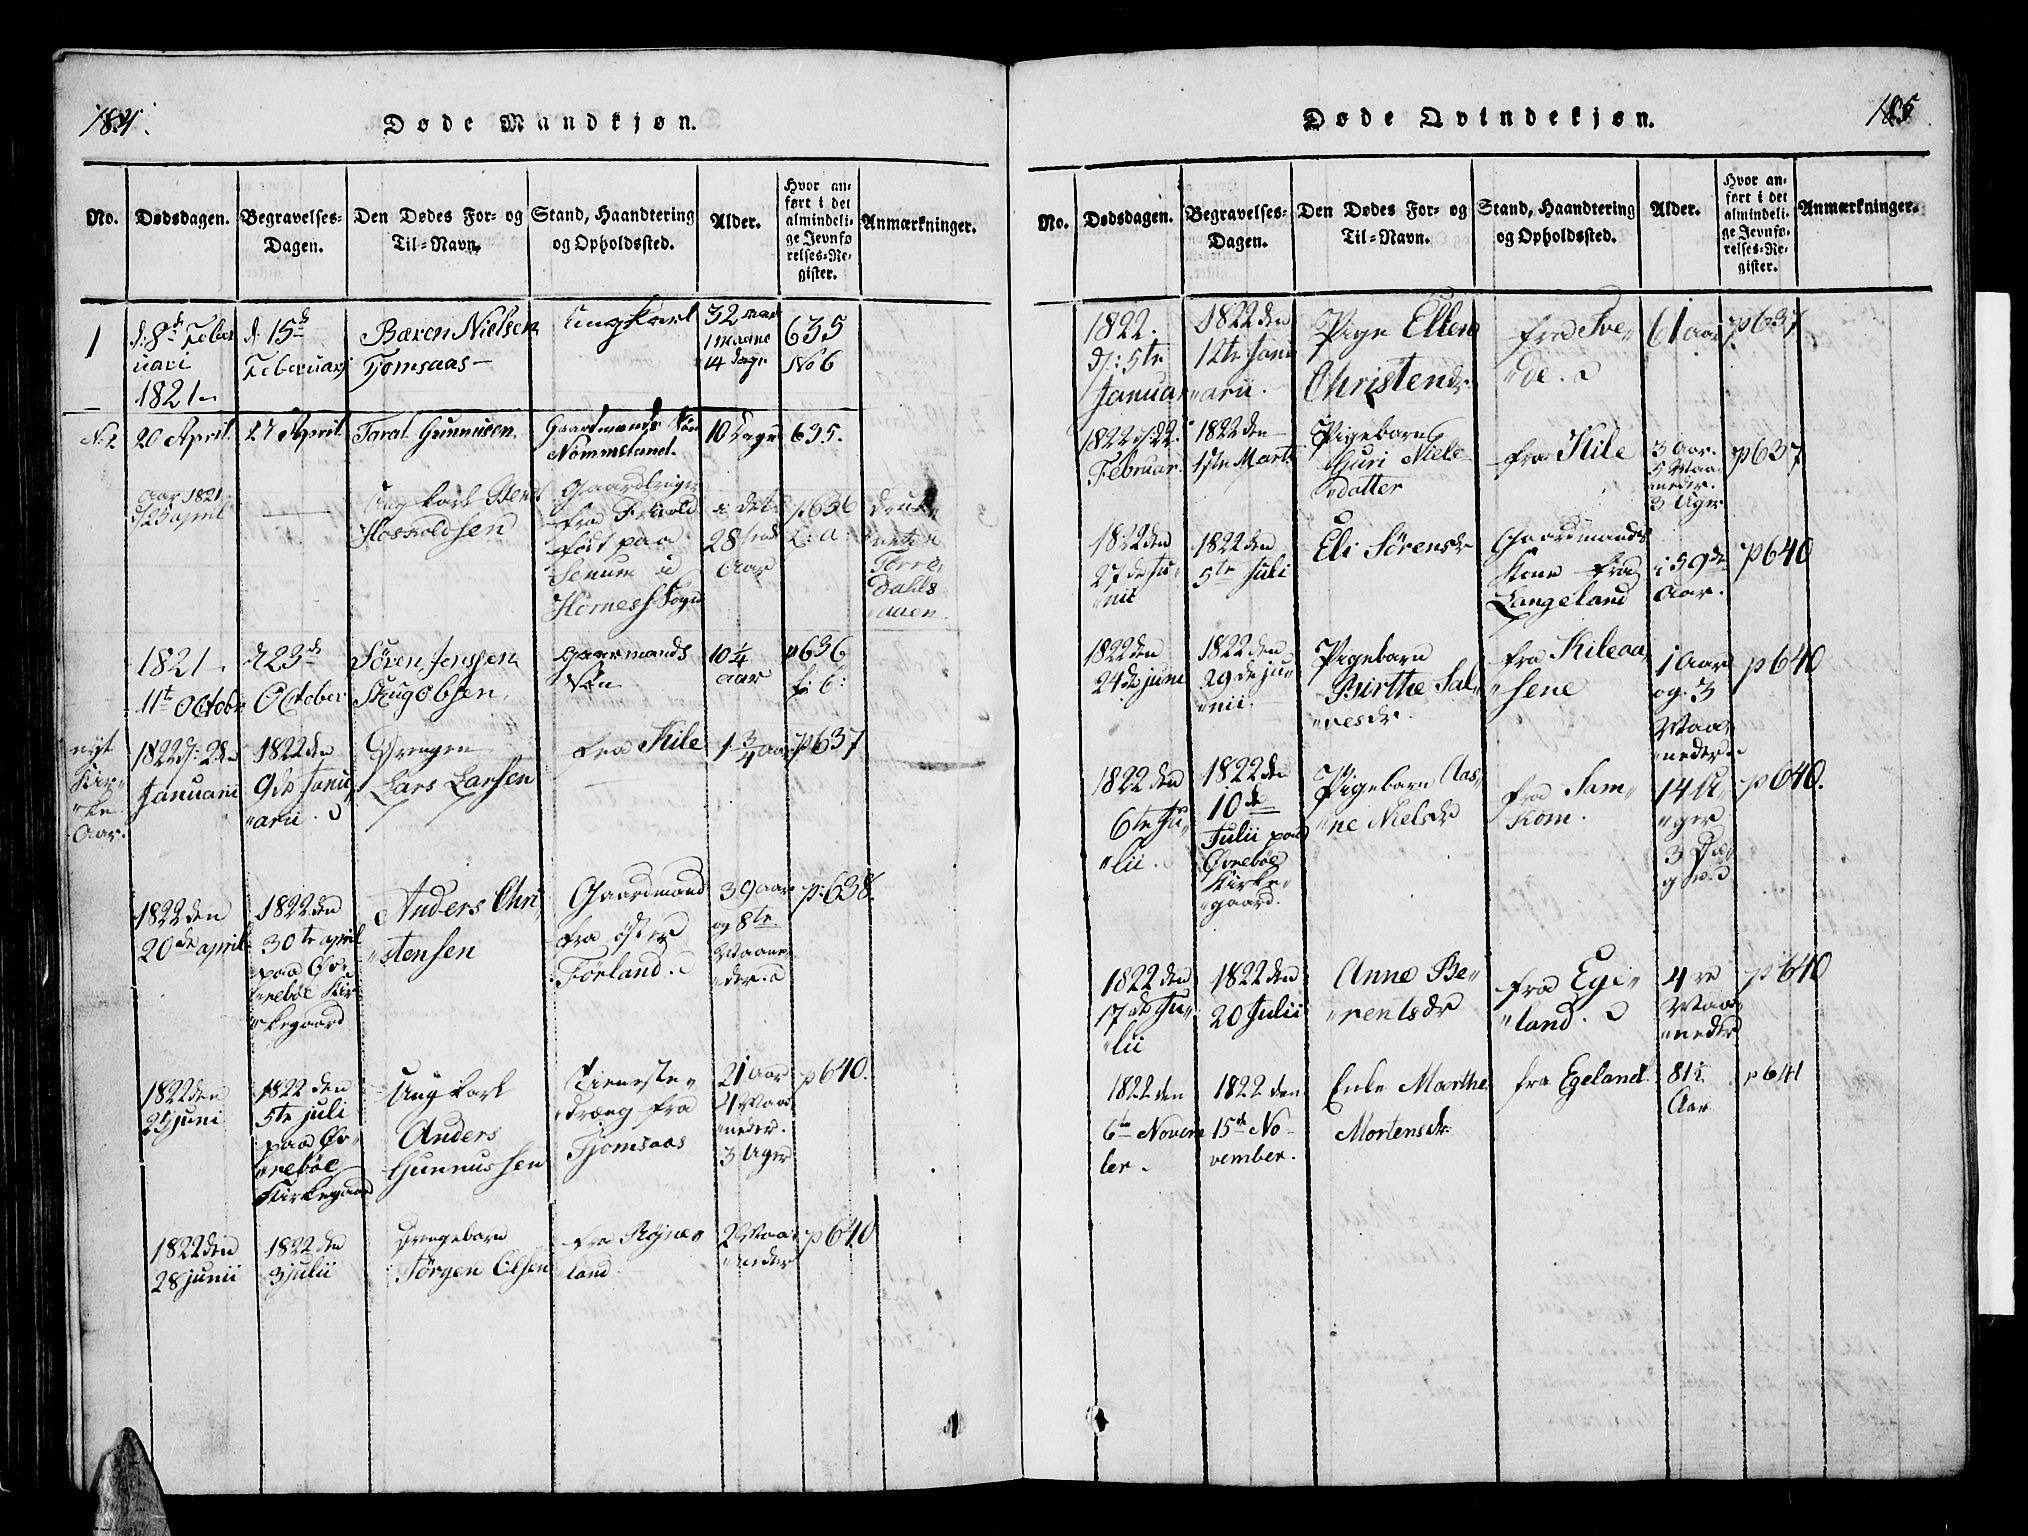 Døde Mandkjøn.
No.
Dødsdagen.
Begravelses-
Dagen.
Den Dødes For- og
Til-Navn.
Stand, Haandtering
og Opholdssted.
Alder.
Hvor an-
ført i det
almindeli-
ge Jevnfø-
relses-Re-
gister.
Anmærkninger.
1
d: 8de Febr
uari
1821
d. 15de
Februarj
Bæren Nielsen
Tjomsaas
Ungkarl
32 aar
1 maaned
14 dage
635
No 6
N. 2
20 April.
27 April
Taral Gunnusen
Gaardmands Søn
Nommeland.
10 Dage
635.
Aar 1821
d/ 25 april
Ung karl
Hoskoldsen
fra
født paa
Senum i
Hornes Sogn
i det
28 
Aar
p636
L: a:
druk-
net i
Torre-
Dals
aaen.
1821.
11te Octobr
d 23de
October
Søren Jenssen
Gaarmands
Søn
10 1/4
aar
p636
L: 6:
nyt
Kir-
ke
Aar.
1822 d: 2den
Januarii
1822 den
9de Janu-
arii.
Drengen
Lars Larsen
fra Kile
1 3/4 aar
p637
1822 den
20de april
1822 den
30te april
paa Øv-
rebøe Kir-
kegaard
Anders Chri-
stensen
Gaardmand
fra øster
Forland.
39 aar
og 8te
Maane-
der.
p: 638.
1822 den
25 juni
1822 den
5te juli
paa Øv-
rebøe
Kirkegaard
Ung karl
Anders
Gunnussen
Tieneste-
dreng fra
Tjomsaas
21 aar
4 Maa-
neder.
3 Uger
p640.
1822 den
28 junii
1822 den
3 julii
Drengebarn
Jørgen Olsen
fra Røjne-
land
2 Maa-
neder
p640
Døde Qvindekjøn.
185
No.
Dødsdagen.
Begravelses-
Dagen.
Den Dødes For- og
Til-Navn.
Stand, Haandtering
og Opholdssted.
Alder.
Hvor an-
ført i det
almindeli-
ge Jevnfø-
relses-Re-
gister.
Anmærkninger.
1822.
d: 5te
Januar
1822 den
12te Janu
arii.
Pige Ellen
Christensdr
fra Sve-
de.
61 aar
p637
1822 d: 22.
Februar
1822 den
1ste Marts
Pigebarn
Guri Niels-
datter
fra Kile
3 Aar.
5 Maa-
neder.
3 Uger
p637
1822 den
27de Ju-
nii
1822 den
5te Juli
Eli Sørensdr
Gaardmands
Kone fra
Langeland
i 59de
Aar.
p640
1822 den
24de juni
1822 den
29de ju-
nii.
Pigebarn
Birthe Sal-
vesdr.
fra Kileaa-
sene
1 Aar
og 3
Maa-
neder
p640
1822 den
6te Ju-
lii.
1822 den
10de
Julii paa
Øvrebøe
Kirke-
gaard.
Pigebarn Aas-
ne Nielsdr
fra Sam-
kom.
14 U-
ger
3 Da-
ge.
p640.
1822 den
17de Ju-
lii
1822 den
20 Julii
Anne Be-
rentsdr
fra Ege-
land.
4re
Maa-
neder
p640
1822 den
6te Novem
ber.
1822 den
15de No-
vember.
Enke Marthe
Mortensdr.
fra Egeland
81 1/2
Aar
p641